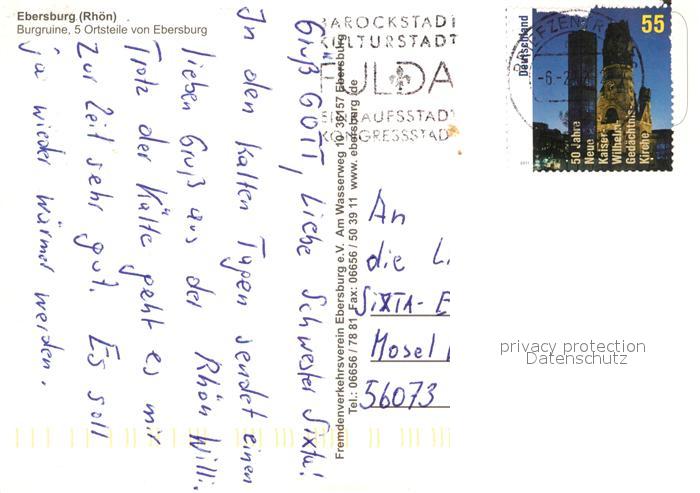 Ebersburg (Rhön)
Burgruine, 5 Ortsteile von Ebersburg
Grüß GOTT, Liebe Schwester Sixta!
In den kalten Tagen sendet einen
lieben Gruß aus der Rhön Willi.
Trotz der Kälte geht es mir
zur Zeit sehr gut. Es soll
ja wieder wärmer werden.
Fremdenverkehrsverein Ebersburg e.V. Am Wasserweg 10 36157 Ebersburg
Tel.: 06656 / 78 81 Fax: 06656 / 50 39 11 www. ebersburg.de
BAROCKSTADT
KULTURSTADT
FULDA
EINKAUFSSTADT
KONGRESSSTADT
BRIEFZENTRUM
-6.-2.
Deutschland
55
50 Jahre
Neue
Kaiser
Wilhelm
Gedächtnis
Kirche
2011
An
die
SIXTA-
Mosel
56073
privacy protection
Datenschutz